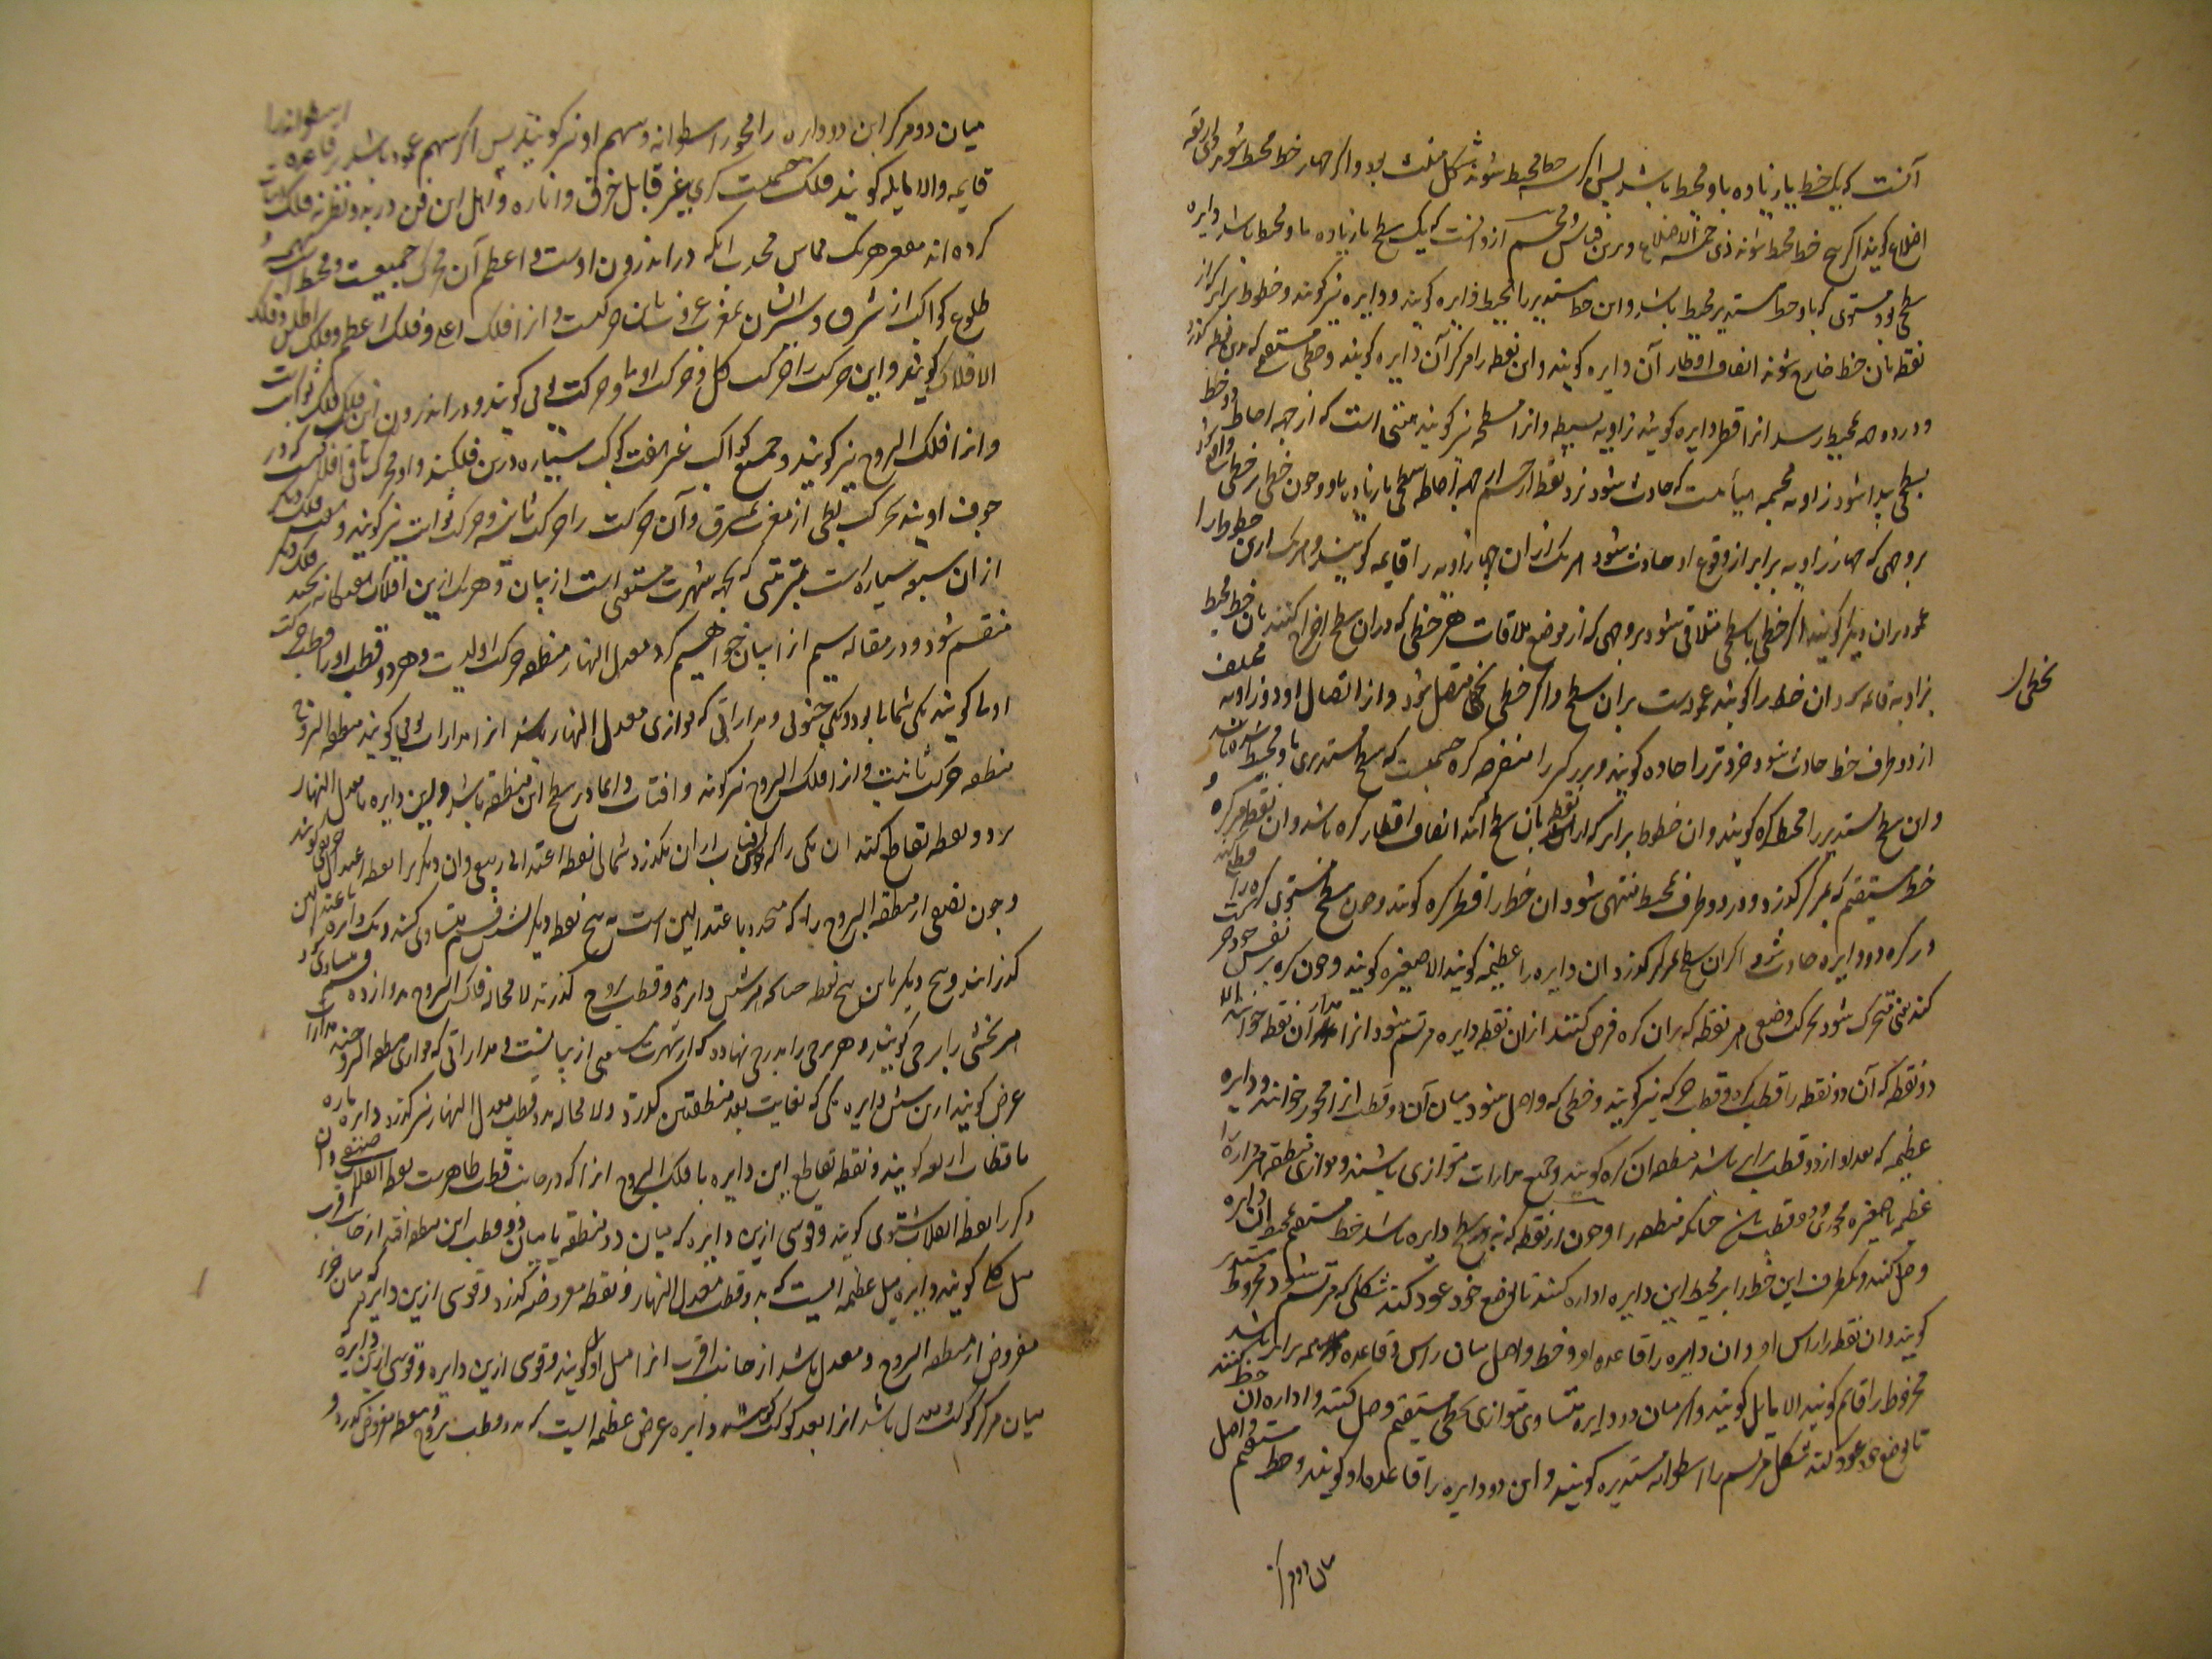 آنست که یک خط یا زیاده باو محیط باشد پس اگر سه خط محیط شوند شکل مثلث بود و اگر چهار خط محیط شوند ذی اربعه
اضلاع کویند اگر پنج خط محیط شوند ذی خمسة الاضلاع و برین قیاس و مجسم ازو آنست که یک سطح یا زیاده باو محیط باشد دایره
سطحی بود مستوی که باو خط مستدیر محیط باشد و این خط مستدیر را محیط دایره کویند و دایره نیز کویند و خطوط برابر که از
نقطه بآن خط خارج شوند انصاف اقطار آن دایره کویند و این نقطه را مرکز آن دایره کویند و خطی مستقیم که برین نقطه کذرد
و در دو جهه بمحیط رسد انرا قطر دایره کویند زاویه بسیطه و انرا مسطحه نیز کویند است که از جهه احاطه دو خط
بسطحی پیدا شود زاویه مجسمه هیأتست که حادث شود نزد نقطه از جسم از جهه احاطه سطحی یا زیاده باو و چون خطی بر خطی واقع شود
بر وجهی که چهار زاویه برابر از وقوع او حادث شود هر یک از ان چهار زاویه را قایمه کویند و هر یک ازین خطوط را
عمود بران دیکر کویند اکر خطی با سطحی متلاقی شود بر وجهی که از موضع ملاقات هر خطی که دران سطح اخراج کنند بان خط محیط
بزاویه قایمه کردد ان خط را کویند عمودست بران سطح و اکر خطی بخطی متصل شود و از اتصال او دو زاویه مختلف
بخطی
از دو طرف خط حادث شود خردتر را حاده کویند و بزرکتر را منفرجه کره جسمیست که سطح مستدیری باو محیط شده باشد
و ان سطح مستدیر را محیط کره کویند و ان خطوط برابر که از ان نقطه بان سطح آیند انصاف اقطار کره باشد و ان نقطه مرکز کره و
خط مستقیم که بمرکز کذرد و در دو طرف بمحیط منتهی شود ان خط را قطر کره کویند و چون سطح مستوی کره را قطع کند
در کره دو دایره حادث شود اکر ان سطح بمرکز کذرد ان دایره را عظیمه کویند و الا صغیره کویند و چون کره بر نفس خود حرکت
کند یعنی متحرک شود بحرکت وضعی هر نقطه که بران کره فرض کنند ازان نقطه دایره مرتسم شود انرا مدار ان نقطه خوانند الا
دو نقطه که آن دو نقطه را قطب کره و قطب حرکه نیز کویند و خطی که واصل شود میان آن دو قطب انرا محور خوانند و دایره
عظیمه که بعد او از دو قطب برابر باشد منطقه ان کره کویند و جمیع مدارات متوازی باشند و موازی منطقه هر دایره را
عظیمه یا صغیره محوری و دو قطب باشد چنانکه منطقه را و چون از نقطه که نه بر سطح دایره باشد خط مستقیم بمحیط ان دایره
وصل کنند و یکطرف این خط را بر محیط این دایره اداره کنند تا بوضع خود عود کند شکلی که مرتسم شود مخروط مستدیر
کویند و ان نقطه را راس او و ان دایره را قاعده او و خط واصل میان راس و قاعده سهم برابر باشد
مخروط را قایم کویند الا مایل کویند و اکر میان دو دایره متساوی متوازی بخطی مستقیم وصل کنند و اداره ان خط کنند
تا بوضع خود عود کند شکل مرتسم را اسطوانه مستدیره کویند و این دو دایره را قاعده او کویند و خط مستقیم واصل
میان دو مرکز
میان دو مرکز این دو دایره را محور اسطوانه و سهم او نیز کویند پس اکر سهم عمود باشد بر قاعده اسطوانه را
قایمه و الا مایله کویند فلک جسمیست کری غیر قابل خرق و اناره و اهل این فن در بدو نظر نه فلک اثبات
کرده اند مقعر هر یک مماس محدب انکه در اندرون اوست و اعظم آن محرک جمیعست و محیط بهمه و
طلوع کواکب از شرق و سیر ایشان بمغرب حرکتست و انرا فلک اعلی و فلک اعظم و فلک اطلس و فلک
الافلاک کویند و این حرکت را حرکت کل و حرکت اولی و حرکت یومی کویند و در اندرون این فلک فلک ثوابت
و انرا فلک البروج نیز کویند و جمیع کواکب غیر هفت کوکب سیاره درین فلکند و او محرک باقی افلاکست که در
جوف اویند بحرکت بطی از مغرب بمشرق و آن حرکت را حرکت ثانیه و حرکت ثوابت نیز کویند و هفت فلک دیکر
ازان سبعه سیاره است بترتیبی که بجهه شهرت مستغنی است از بیان و هریک ازین افلاک هفتکانه بچند فلک دیکر
منقسم شود و در مقاله سیم انرا بیان خواهیم کرد معدل النهار منطقه حرکت اولیست و هر دو قطب او را قطب حرکت
اولی کویند یکی شمالی بود و یکی جنوبی و مداراتی که موازی معدل النهار باشند انرا مدارات یومی کویند منطقه البروج
منطقه حرکت ثانیست و انرا فلک البروج نیز کویند و افتاب دایما در سطح این منطقه باشد و این دایره با معدل النهار
بر دو نقطه تقاطع کند ان یکی را که چون آفتاب از ان بکذرد شمالی نقطه اعتدال ربیعی و ان دیکر را نقطه اعتدال خریفی کویند
و چون نصفی از منطقه البروج را که محدود باعتدالین است به پنج نقطه دیکر بشش قسم متساوی کنند و یک دایره باعتدالین
کذرانند و پنج دیکر باین پنج نقطه چنانکه هر شش دایره بدو قطب بروج کذرند لا محاله فلک البروج بدوازده قسم متساوی کردد
هر بخشی را برجی کویند و هر برجی را مدرجی نهاده که از شهرت مستغنی از بیانست و مداراتی که موازی منطقه البروج باشند مدارات
عرض کویند ازین شش دایره یکی که بغایت بعد منطقتین کذرد و لا محاله بدو قطب معدل النهار نیز کذرد دایره ماره
باقطاب اربعه کویند و نقطه تقاطع این دایره با فلک البروج انرا که در جانب قطب ظاهرست نقطه انقلاب صیفی و ان
دیکر را نقطه انقلاب شتوی کویند و قوسی ازین دایره که میان دو منطقه یا میان دو قطب این منطقه افتد از جانب اقرب
میل کلی کویند و دایره میل عظیمه ایست که بدو قطب معدل النهار و نقطه مفروضه کذرد و قوسی ازین دایره که میان جزو
مفروض از منطقه البروج و معدل باشد از جانب اقرب انرا میل اول کویند و قوسی ازین دایره و قوسی ازین دایره
میان مرکز کوکب و معدل باشد انرا بعد کوکب کویند و دایره عرض عظیمه ایست که بدو قطب بروج و نقطه مفروض کذرد و